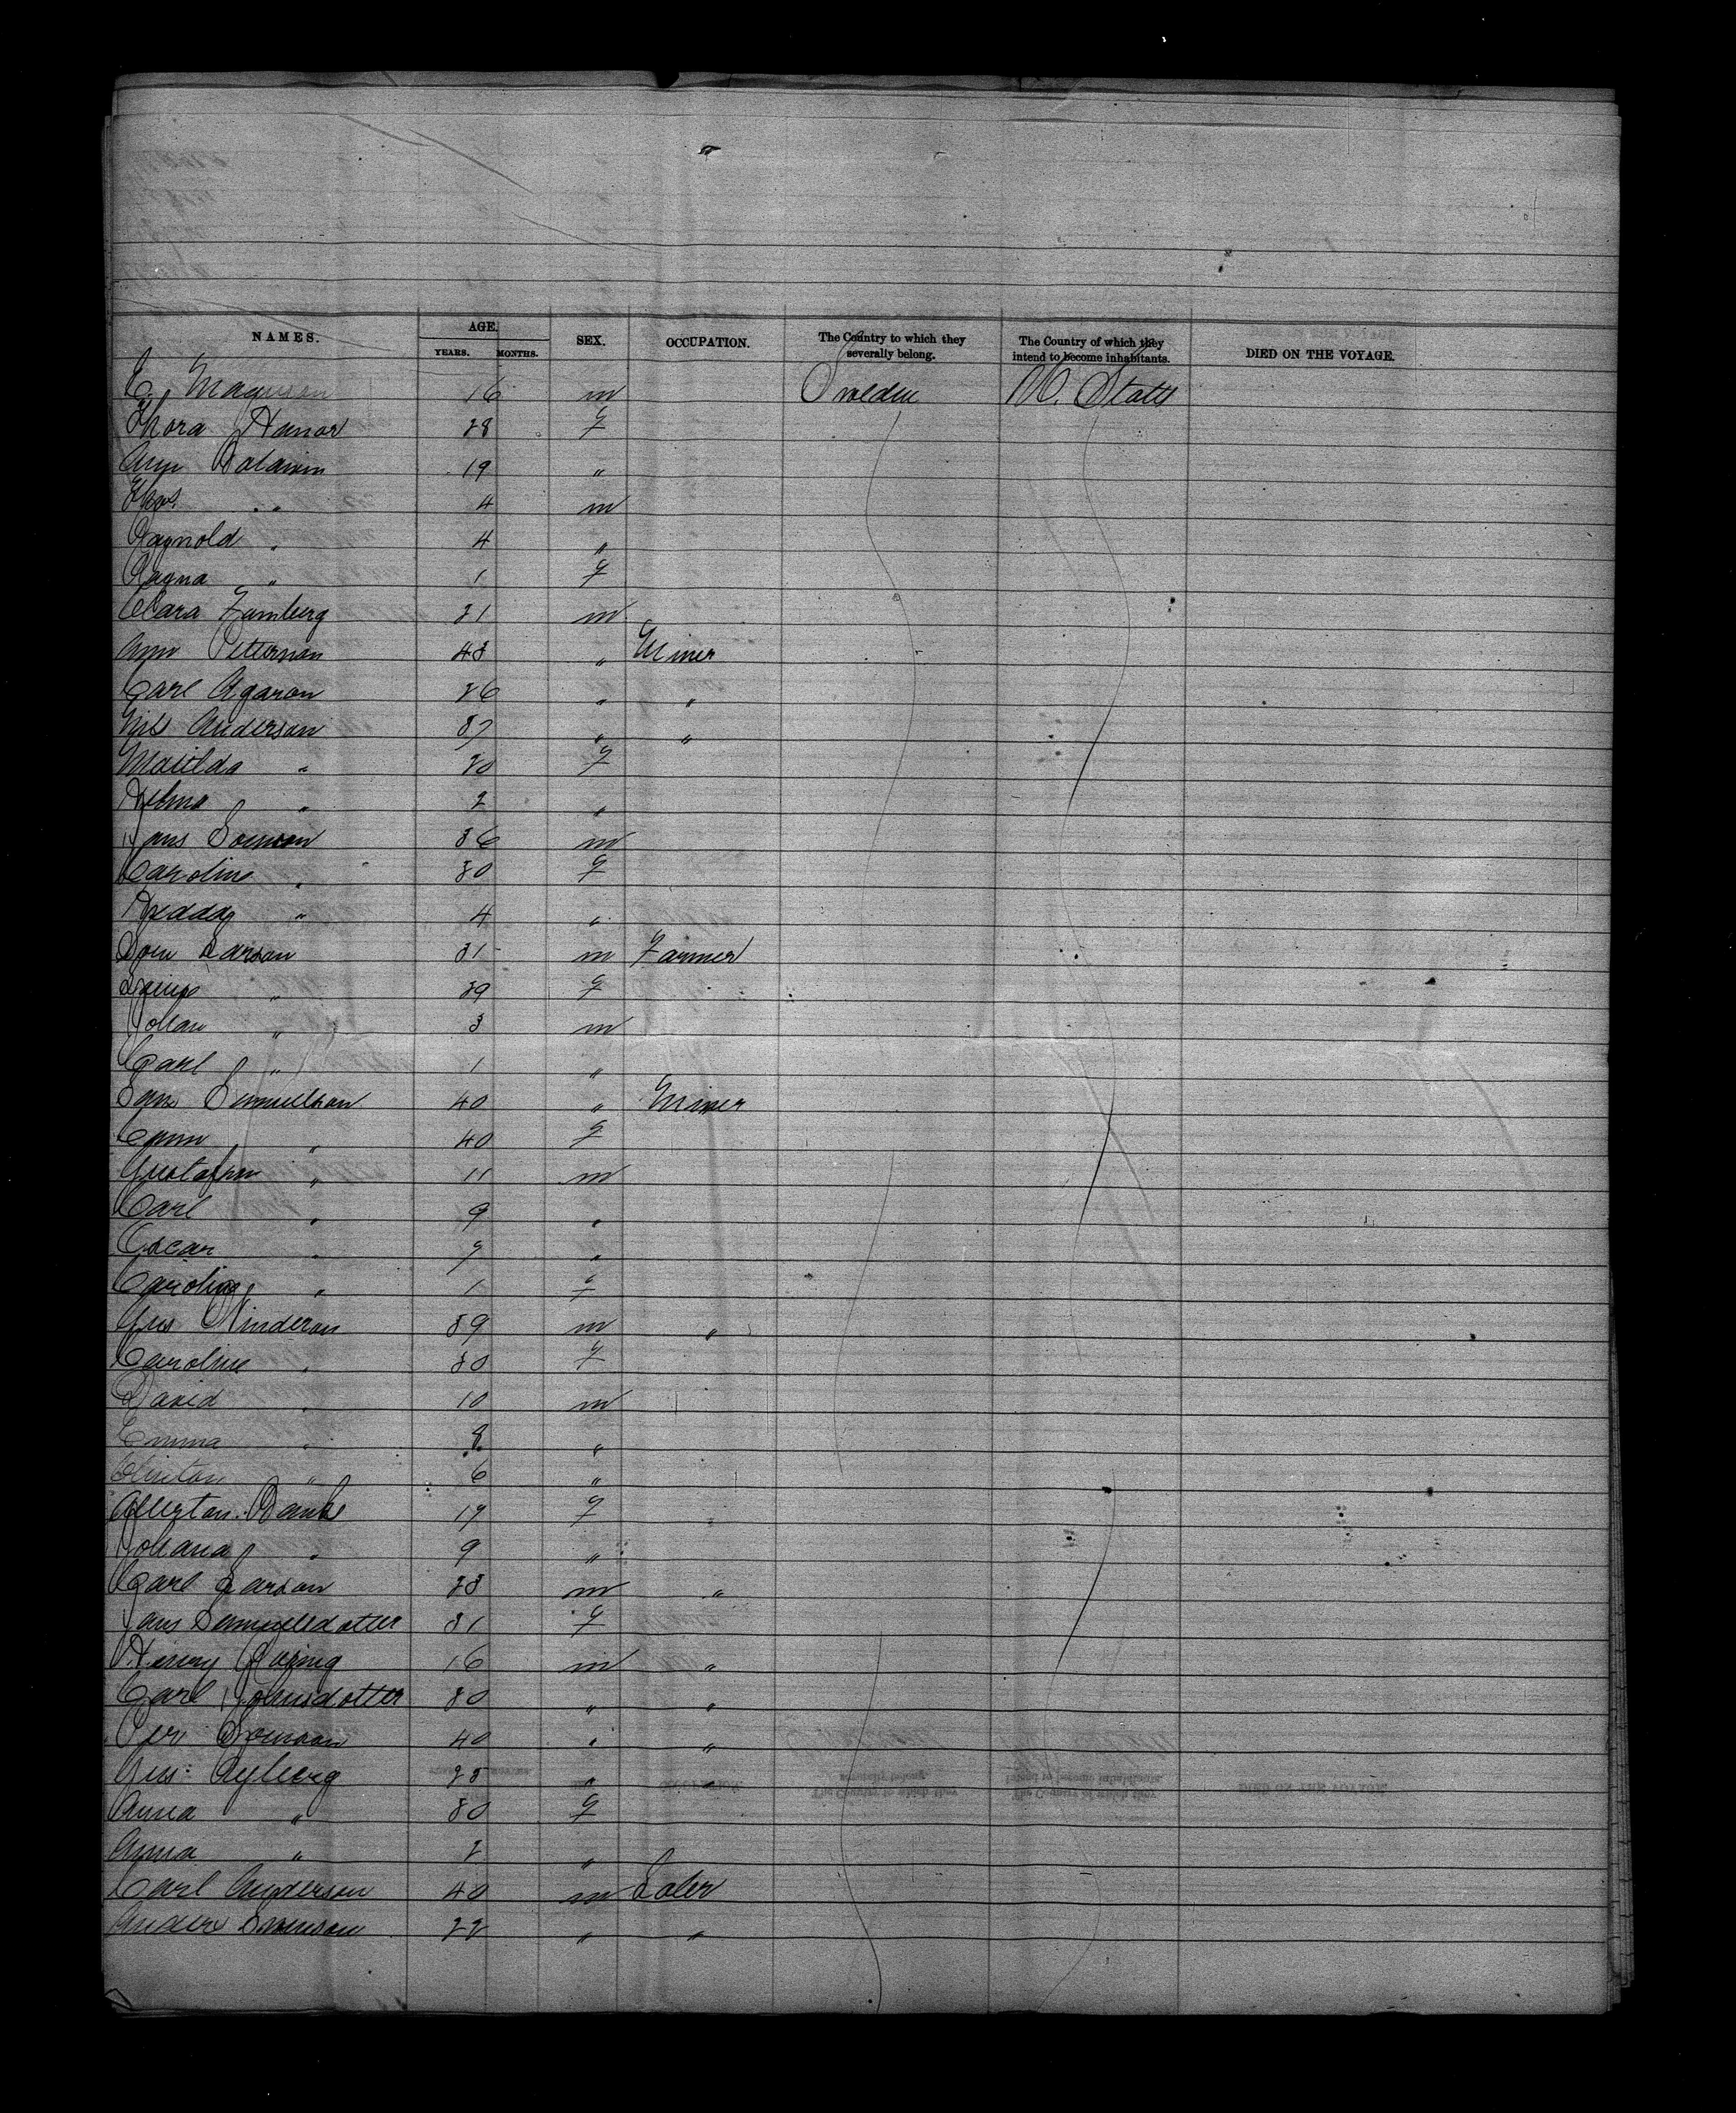 NAMES. AGE. YEARS. MONTHS. SEX. OCCUPATION. The Country to which they severally belong. The Country of which they intend to become inhabitants. DIED ON THE VOYAGE.
E. Magnuson 16 m Sweden U. States
Thora Hanor 28 f
19 "
Thos " 4 m
Ragnold " 4 "
Ragna " 1 f
Clara Famberg 21 m
Petterson 43 " Miner
Carl Agaron 26 " "
Nils Anderson 37 " "
Matilda " 20 f
Helma " 2 "
Jans Soenson 36 m
Caroline " 30 f
Hedda " 4 "
Larson 31 m Farmer
" 29 f
Johan " 3 m
Carl " 1 "
Samuelson 40 " Miner
" 40 f
" 11 m
Carl " 9 "
Oscar " 7 "
Caroline " 1 f
Gus Ninderon 39 m "
Caroline " 30 f
David " 10 m
Emma " 8 "
Clinton " 6 "
17 f
Johana " 9 "
Carl Larson 23 m "
Jans Samuelsdotter 31 f
Henny 16 m "
Carl Johnsdotter 30 " "
Per Soenson 40 " "
Gus Ryberg 25 " "
Anna " 30 f
Anna " 2 "
Carl Anderson 40 m Laber
Anders Svenson 22 " "